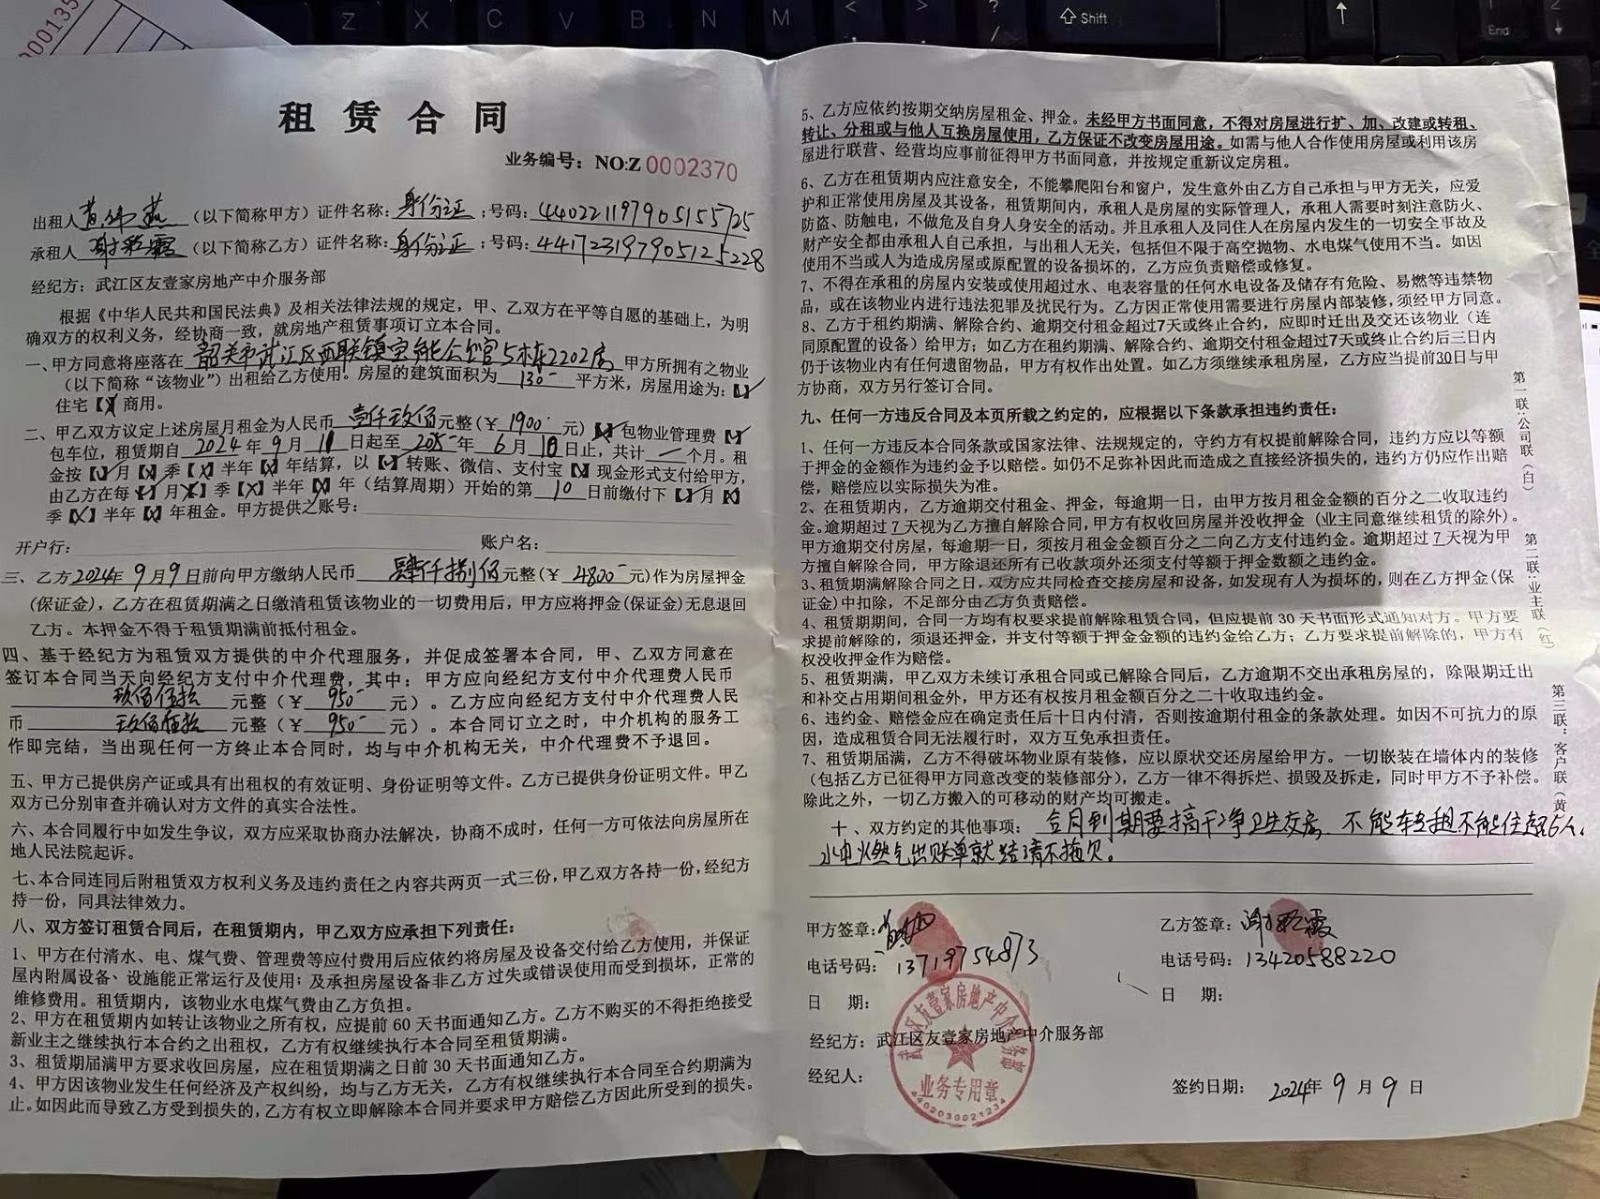 租赁合同
业务编号：NO:Z 0002370
出租人（以下简称甲方）证件名称：身份证；号码：440221197905155725
承租人（以下简称乙方）证件名称：身份证；号码：441723197905125228
经纪方：武江区友壹家房地产中介服务部
根据《中华人民共和国民法典》及相关法律法规的规定，甲、乙双方在平等自愿的基础上，为明
确双方的权利义务，经协商一致，就房地产租赁事项订立本合同。
一、甲方同意将座落在 韶关市武江区西联镇宝能公馆5栋2202房 甲方所拥有之物业
（以下简称“该物业”）出租给乙方使用。房屋的建筑面积为 130 平方米，房屋用途为：【】
住宅【】商用。
二、甲乙双方议定上述房屋月租金为人民币 壹仟玖佰 元整（￥ 1900 元）【】包物业管理费【】
包车位，租赁期自 2024 年 9 月 日起至 年 6 月 日止，共计 个月。租
金按【】月【】季【】半年【】年结算，以【】转账、微信、支付宝【】现金形式支付给甲方，
由乙方在每【】月【】季【】半年【】年（结算周期）开始的第 10 日前缴付下【】月【】
季【】半年【】年租金。甲方提供之账号：
开户行： 账户名：
三、乙方 2024年 9月9日前向甲方缴纳人民币 肆仟捌佰 元整（￥ 4800 元）作为房屋押金
（保证金），乙方在租赁期满之日缴清租赁该物业的一切费用后，甲方应将押金（保证金）无息退回
乙方。本押金不得于租赁期满前抵付租金。
四、基于经纪方为租赁双方提供的中介代理服务，并促成签署本合同，甲、乙双方同意在
签订本合同当天向经纪方支付中介代理费，其中：甲方应向经纪方支付中介代理费人民币
玖佰伍拾 元整（￥ 950 元）。乙方应向经纪方支付中介代理费人民
币 玖佰伍拾 元整（￥ 950 元）。本合同订立之时，中介机构的服务工
作即完结，当出现任何一方终止本合同时，均与中介机构无关，中介代理费不予退回。
五、甲方已提供房产证或具有出租权的有效证明、身份证明等文件。乙方已提供身份证明文件。甲乙
双方已分别审查并确认对方文件的真实合法性。
六、本合同履行中如发生争议，双方应采取协商办法解决，协商不成时，任何一方可依法向房屋所在
地人民法院起诉。
七、本合同连同后附租赁双方权利义务及违约责任之内容共两页一式三份，甲乙双方各持一份，经纪方
持一份，同具法律效力。
八、双方签订租赁合同后，在租赁期内，甲乙双方应承担下列责任：
1、甲方在付清水、电、煤气费、管理费等应付费用后应依约将房屋及设备交付给乙方使用，并保证
屋内附属设备、设施能正常运行及使用；及承担房屋设备非乙方过失或错误使用而受到损坏，正常的
维修费用。租赁期内，该物业水电煤气费由乙方负担。
2、甲方在租赁期内如转让该物业之所有权，应提前 60 天书面通知乙方。乙方不购买的不得拒绝接受
新业主之继续执行本合约之出租权，乙方有权继续执行本合同至租赁期满。
3、租赁期届满甲方要求收回房屋，应在租赁期满之日前 30 天书面通知乙方。
4、甲方因该物业发生任何经济及产权纠纷，均与乙方无关，乙方有权继续执行本合同至合约期满为
止。如因此而导致乙方受到损失的，乙方有权立即解除本合同并要求甲方赔偿乙方因此所受到的损失。
5、乙方应依约按期交纳房屋租金、押金。未经甲方书面同意，不得对房屋进行扩、加、改建或转租、
转让、分租或与他人互换房屋使用，乙方保证不改变房屋用途。如需与他人合作使用房屋或利用该房
屋进行联营、经营均应事前征得甲方书面同意，并按规定重新议定房租。
6、乙方在租赁期内应注意安全，不能攀爬阳台和窗户，发生意外由乙方自己承担与甲方无关，应爱
护和正常使用房屋及其设备，租赁期间内，承租人是房屋的实际管理人，承租人需要时刻注意防火、
防盗、防触电，不做危及自身人身安全的活动。并且承租人及同住人在房屋内发生的一切安全事故及
财产安全都由承租人自己承担，与出租人无关，包括但不限于高空抛物、水电煤气使用不当。如因
使用不当或人为造成房屋或原配置的设备损坏的，乙方应负责赔偿或修复。
7、不得在承租的房屋内安装或使用超过水、电表容量的任何水电设备及储存有危险、易燃等违禁物
品，或在该物业内进行违法犯罪及扰民行为。乙方因正常使用需要进行房屋内部装修，须经甲方同意。
8、乙方于租约期满、解除合约、逾期交付租金超过7天或终止合约，应即时迁出及交还该物业（连
同原配置的设备）给甲方；如乙方在租约期满、解除合约、逾期交付租金超过7天或终止合约后三日内
仍于该物业内有任何遗留物品，甲方有权作出处置。如乙方须继续承租房屋，乙方应当提前30日与甲
方协商，双方另行签订合同。
九、任何一方违反合同及本页所载之约定的，应根据以下条款承担违约责任：
1、任何一方违反本合同条款或国家法律、法规规定的，守约方有权提前解除合同，违约方应以等额
于押金的金额作为违约金予以赔偿。如仍不足弥补因此而造成之直接经济损失的，违约方仍应作出赔
偿，赔偿应以实际损失为准。
2、在租赁期内，乙方逾期交付租金、押金，每逾期一日，由甲方按月租金金额的百分之二收取违约
金。逾期超过 7 天视为乙方擅自解除合同，甲方有权收回房屋并没收押金（业主同意继续租赁的除外）。
甲方逾期交付房屋，每逾期一日，须按月租金金额百分之二向乙方支付违约金。逾期超过 7 天视为甲
方擅自解除合同，甲方除退还所有已收款项外还须支付等额于押金数额之违约金。
3、租赁期满解除合同之日，双方应共同检查交接房屋和设备，如发现有人为损坏的，则在乙方押金（保
证金）中扣除，不足部分由乙方负责赔偿。
4、租赁期期间，合同一方均有权要求提前解除租赁合同，但应提前 30 天书面形式通知对方。甲方要
求提前解除的，须退还押金，并支付等额于押金金额的违约金给乙方；乙方要求提前解除的，甲方有
权没收押金作为赔偿。
5、租赁期满，甲乙双方未续订承租合同或已解除合同后，乙方逾期不交出承租房屋的，除限期迁出
和补交占用期间租金外，甲方还有权按月租金额百分之二十收取违约金。
6、违约金、赔偿金应在确定责任后十日内付清，否则按逾期付租金的条款处理。如因不可抗力的原
因，造成租赁合同无法履行时，双方互免承担责任。
7、租赁期届满，乙方不得破坏物业原有装修，应以原状交还房屋给甲方。一切嵌装在墙体内的装修
（包括乙方已征得甲方同意改变的装修部分），乙方一律不得拆烂、损毁及拆走，同时甲方不予补偿。
除此之外，一切乙方搬入的可移动的财产均可搬走。
十、双方约定的其他事项： 合同到期要搞干净卫生交房，不能转租不能住超6人，
水电火燃气出账单就结清不拖欠。
甲方签章：
电话号码：13719754873
日 期：
乙方签章：谢彩霞
电话号码：13420588220
日 期：
经纪方：武江区友壹家房地产中介服务部
经纪人：
签约日期： 2024年 9 月 9 日
武江区友壹家房地产中介服务部
业务专用章
4402030021234
第一联：公司联（白）
第二联：业主联（红）
第三联：客户联（黄）
000135
Z X C V B N M < > ? / Shift
End